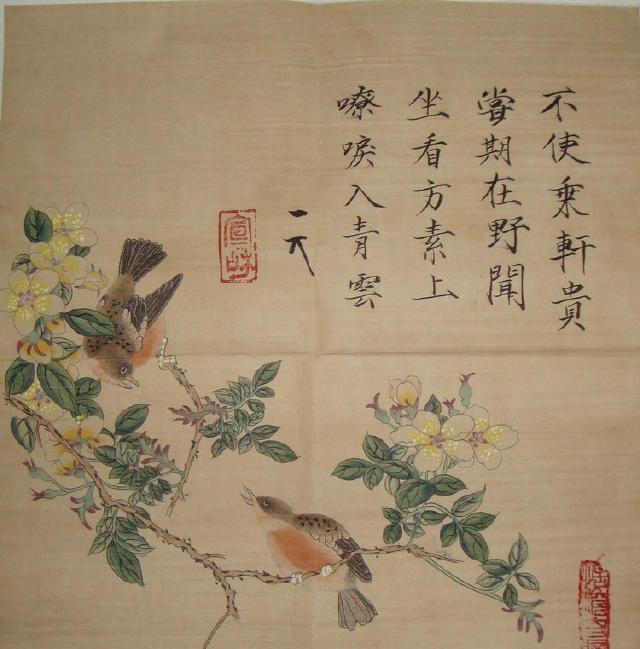 不使乗軒貴
嘗期在野聞
坐看方素上
嘹唳入青雲